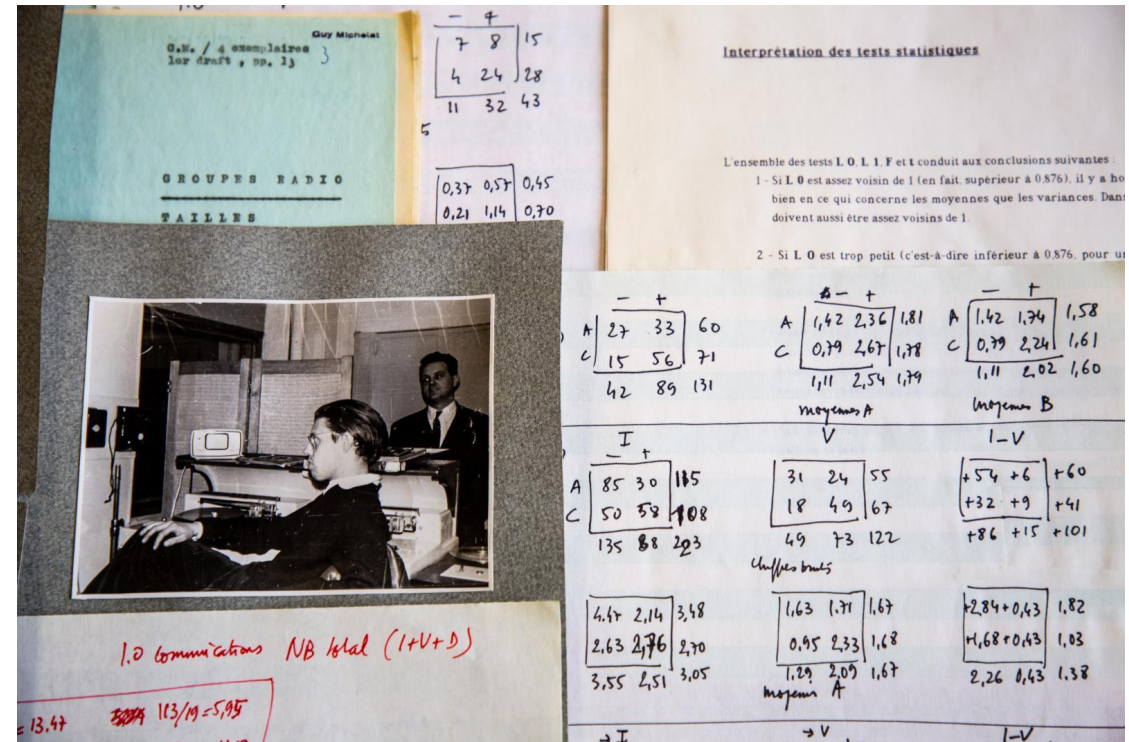 Guy Michelat
G.N. / 4 exemplaires
1er draft , pp. 13 3
GROUPES RADIO
TAILLES
- +
7 8 15
4 24 28
11 32 43
5
0,37 0,57 0,45
0,21 1,14 0,70
Interprétation des tests statistiques
L'ensemble des tests L 0, L 1, F et t conduit aux conclusions suivantes :
1 - Si L 0 est assez voisin de 1 (en fait, supérieur à 0,876), il y a ho
bien en ce qui concerne les moyennes que les variances. Dans
doivent aussi être assez voisins de 1.
2 - Si L 0 est trop petit (c'est-à-dire inférieur à 0,876, pour un
- +
A 27 33 60
C 15 56 71
42 89 131
- +
A 1,42 2,36 1,81
C 0,79 2,67 1,78
1,11 2,54 1,79
moyennes A
- +
A 1.42 1,74 1,58
C 0,79 2,24 1,61
1,11 2,02 1,60
moyennes B
I
- +
A 85 30 115
C 50 58 108
135 88 223
V
31 24 55
18 49 67
49 73 122
chiffres bruts
I-V
+54 +6 +60
+32 +9 +41
+86 +15 +101
4.47 2,14 3,48
2,63 2,76 2,70
3,55 2,51 3,05
1,63 1.71 1,67
0,95 2,33 1,68
1,29 2,09 1,67
moyennes A
+2,84+0,43 1,82
+1,68+0,43 1,03
2,26 0,43 1.38
→ I
→ V
I-V
1.0 communications NB total (I+V+D)
= 13.47 113/19=5,95